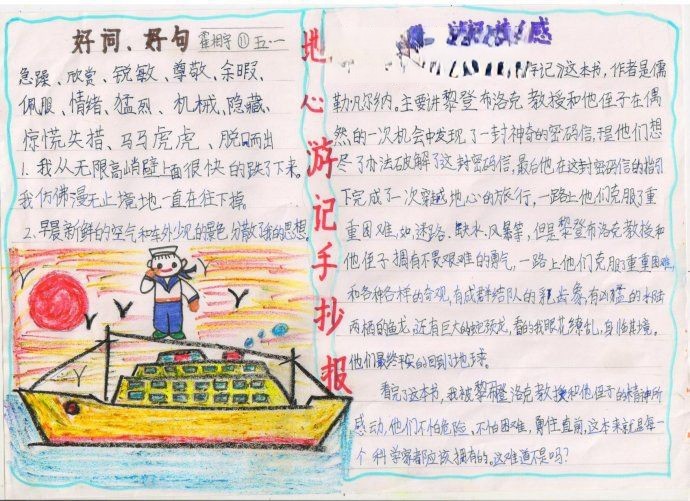 好词、好句
五·一
急躁、欣赏、锐敏、尊敬、余暇、
佩服、情绪、猛烈、机械、隐藏、
惊慌失措、马马虎虎、脱口而出
1.我从无限高峭壁上面很快的跌了下来。
我仿佛漫无止境地一直在往下掉。
2.早晨新鲜的空气和车外少见的景色,分散了我的思想。
地心游记手抄报
感
游记》这本书,作者是儒
勒·凡尔纳。主要讲黎登布洛克教授和他侄子在偶
然的一次机会中发现了一封神奇的密码信,于是他们想
尽了办法破解了这封密码信,最后他在这封密码信的指引
下完成了一次穿越地心的旅行,一路上他们克服了重
重困难,如:迷路、缺水、风暴等,但是黎登布洛克教授和
他侄子拥有不畏艰难的勇气,一路上他们克服了重重困难
和各种各样的奇观,有成群结队的乳齿象,有凶猛的水陆
两栖的鱼龙,还有巨大的蛇颈龙,看的我眼花缭乱,身临其境。
他们最终平安的回到了地球。
看完了这本书,我被黎登布洛克教授和他侄子的精神所
感动,他们不怕危险、不怕困难,勇往直前,这本来就是每一
个科学家都应该拥有的。这难道不是吗?